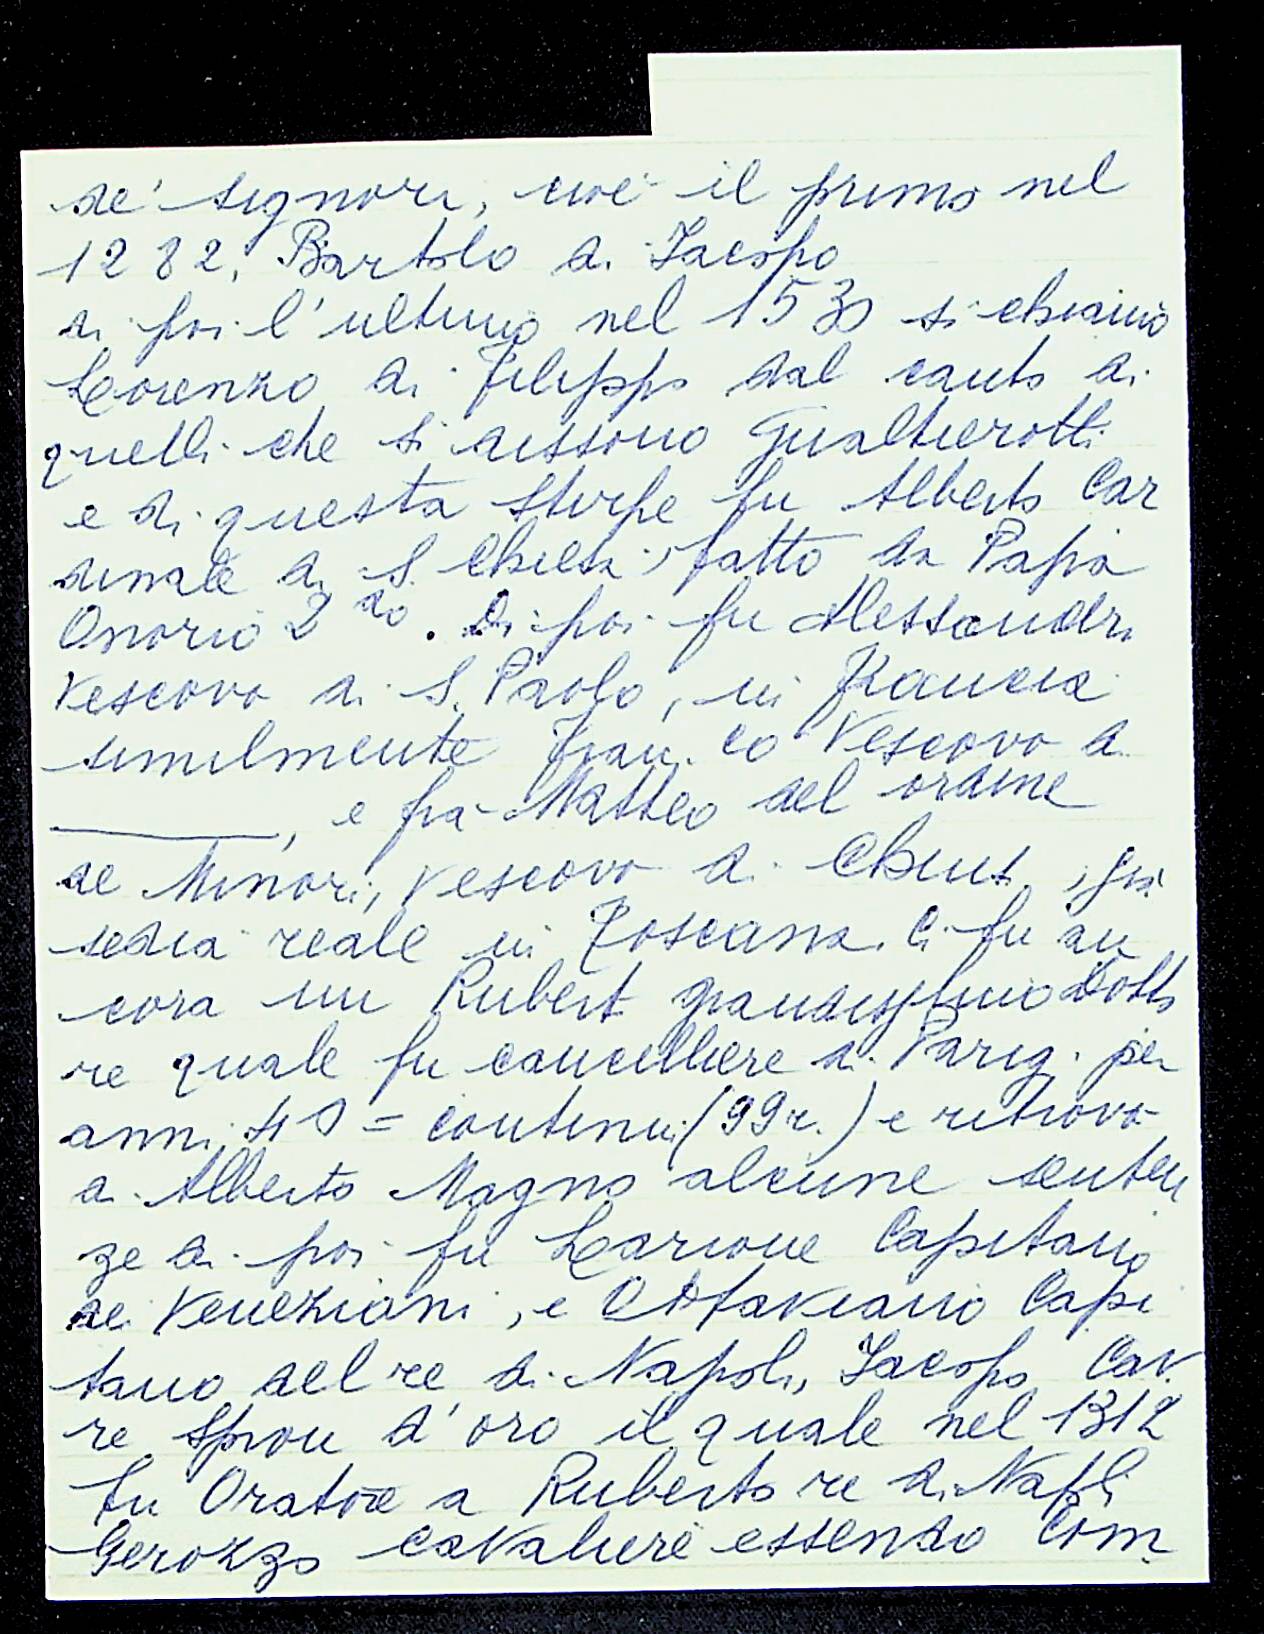 de' Signori, cioè il primo nel
1282, Bartolo di Iacopo
di poi l'ultimo nel 1530 si chiamò
Lorenzo di Filippo dal canto di
quelli che si dissono Gualtierotti
e di questa stirpe fu Alberto Car
dinale di S. Chiesa, fatto da Papa
Onorio 2 do. Di poi fu Alessandr.
Vescovo di S. Paolo, in Francia
similmente Fran.co Vescovo di
________, e fra Matteo del ordine
de Minori, Vescovo di Chiusi, già
sedia reale in Toscana. Ci fu an
cora un Rubert grandissimo Dotto
re quale fu cancelliere di Parig. per
anni 40 = continui (99 r.) e ritrovò
di Alberto Magno alcune senten
ze di poi fu Larione Capitano
de Veneziani, e Ottaviano Capi
tano del re di Napoli, Iacopo Cav.
re Spron d'oro il quale nel 1312
fu Oratore a Ruberto re di Napli
Gerozzo cavaliere essendo Com